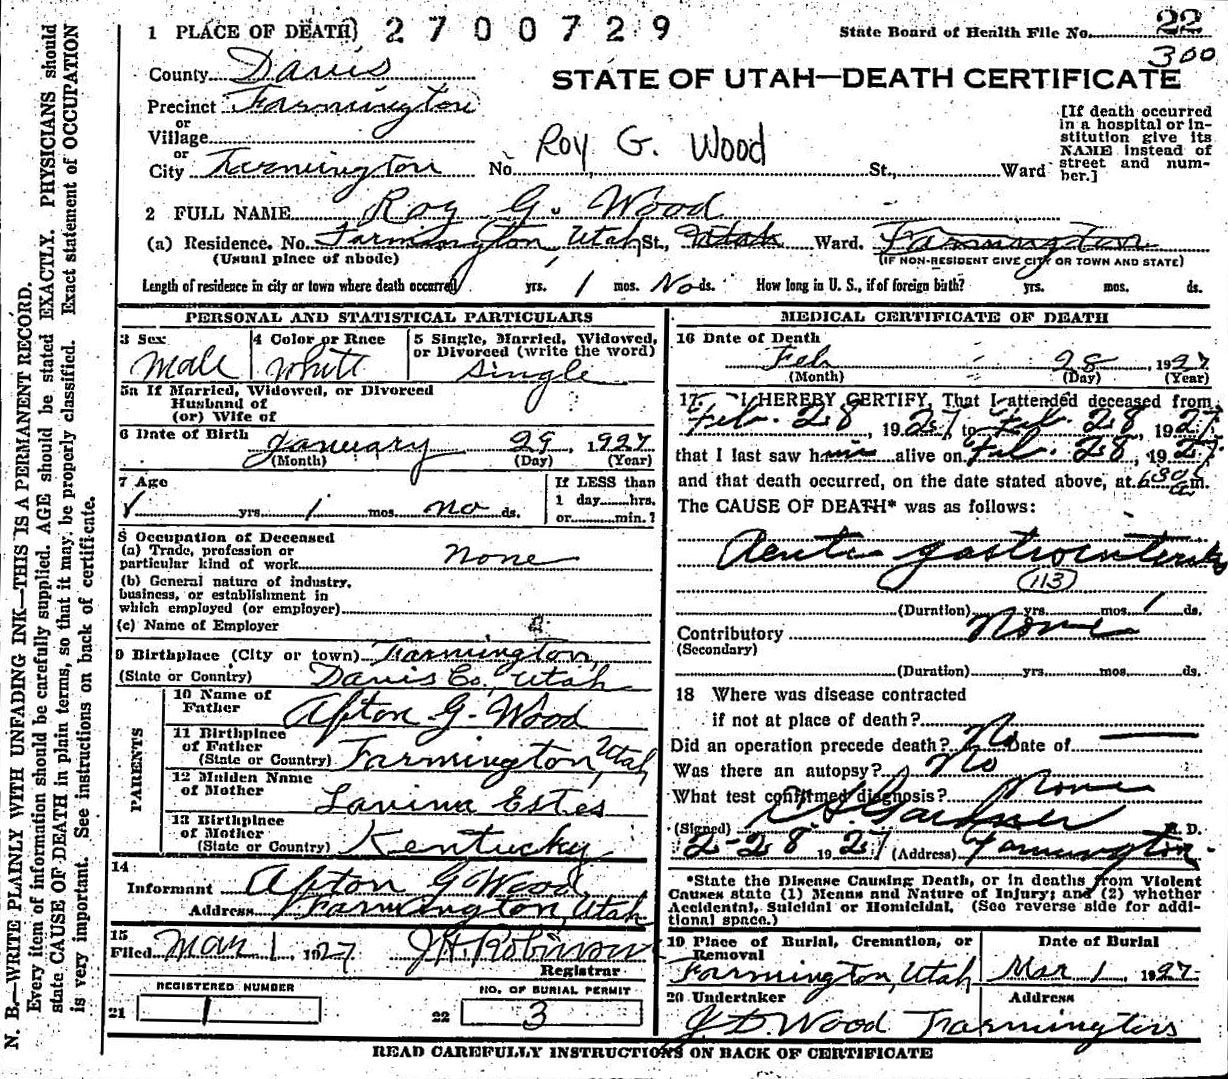 1 PLACE OF DEATH) 2700729 State Board of Health File No. 22
300
County Davis
STATE OF UTAH—DEATH CERTIFICATE
Precinct Farmington
or
Village
or
City Farmington No. Roy G. Wood St., Ward
[If death occurred
in a hospital or in-
stitution give its
NAME instead of
street and num-
ber.]
2 FULL NAME Roy G. Wood
(a) Residence. No. Farmington, Utah St., Utah Ward. Farmington
(Usual place of abode) (IF NON-RESIDENT GIVE CITY OR TOWN AND STATE)
Length of residence in city or town where death occurred yrs. 1 mos. No ds. How long in U. S., if of foreign birth? yrs. mos. ds.
PERSONAL AND STATISTICAL PARTICULARS
3 Sex Male
4 Color or Race White
5 Single, Married, Widowed,
or Divorced (write the word)
Single
5a If Married, Widowed, or Divorced
Husband of
(or) Wife of
6 Date of Birth January 29, 1927
(Month) (Day) (Year)
7 Age
yrs. 1 mos. no ds.
If LESS than
1 day hrs.
or min.?
8 Occupation of Deceased
(a) Trade, profession or
particular kind of work None
(b) General nature of industry,
business, or establishment in
which employed (or employer)
(c) Name of Employer
9 Birthplace (City or town) Farmington,
(State or Country) Davis Co., Utah
PARENTS
10 Name of
Father Afton G. Wood
11 Birthplace
of Father
(State or Country) Farmington, Utah
12 Maiden Name
of Mother Lavina Estes
13 Birthplace
of Mother
(State or Country) Kentucky
14
Informant Afton G Wood
Address Farmington, Utah
15
Filed Mar 1, 1927 J. H. Robinson
Registrar
REGISTERED NUMBER
21 1
NO. OF BURIAL PERMIT
22 3
MEDICAL CERTIFICATE OF DEATH
16 Date of Death
Feb 28, 1927
(Month) (Day) (Year)
17. I HEREBY CERTIFY, That I attended deceased from
Feb. 28, 1927, to Feb. 28, 1927
that I last saw him alive on Feb. 28, 1927.
and that death occurred, on the date stated above, at 630 a.m.
The CAUSE OF DEATH* was as follows:
Acute gastroenteritis
113
(Duration) yrs. mos. 1 ds.
Contributory None
(Secondary)
(Duration) yrs. mos. ds.
18 Where was disease contracted
if not at place of death?
Did an operation precede death? No Date of
Was there an autopsy? No
What test confirmed diagnosis? None
(Signed) Gardner M. D.
2-28 1927 (Address) Farmington
*State the Disease Causing Death, or in deaths from Violent
Causes state (1) Means and Nature of Injury; and (2) whether
Accidental, Suicidal or Homicidal. (See reverse side for addi-
tional space.)
19 Place of Burial, Cremation, or
Removal
Farmington, Utah
Date of Burial
Mar 1, 1927
20 Undertaker Address
J D Wood Farmington
READ CAREFULLY INSTRUCTIONS ON BACK OF CERTIFICATE
N. B.—WRITE PLAINLY WITH UNFADING INK—THIS IS A PERMANENT RECORD.
Every item of information should be carefully supplied. AGE should be stated EXACTLY. PHYSICIANS should
state CAUSE OF DEATH in plain terms, so that it may be properly classified. Exact statement of OCCUPATION
is very important. See instructions on back of certificate.